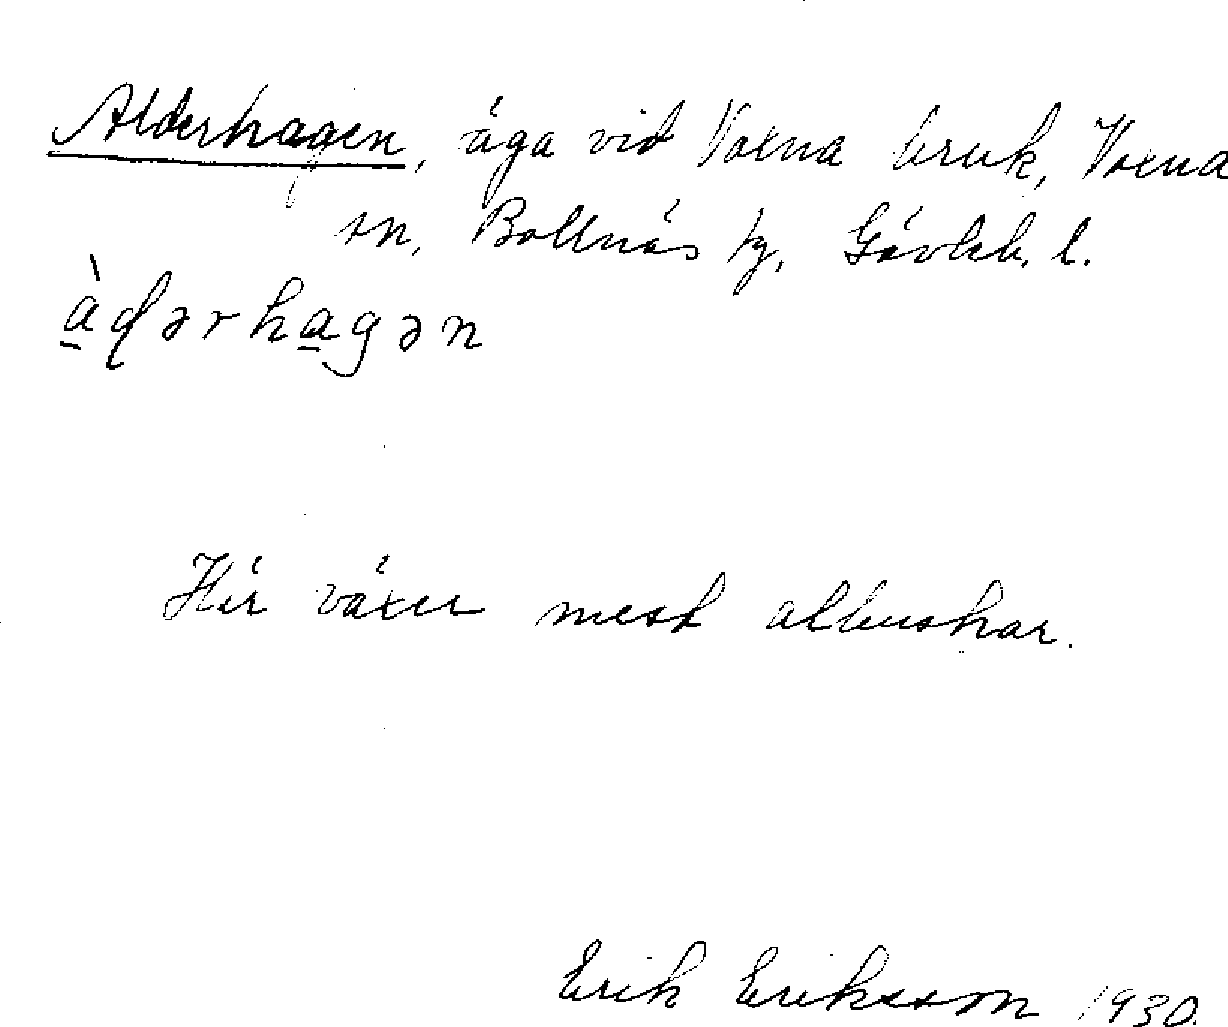 Alderhagen, äga vid Voxna bruk, Voxna
sn, Bollnäs tg, Gävleb. l.
àdərhagən
Här växer mest albuskar.
Erik Eriksson 1930.